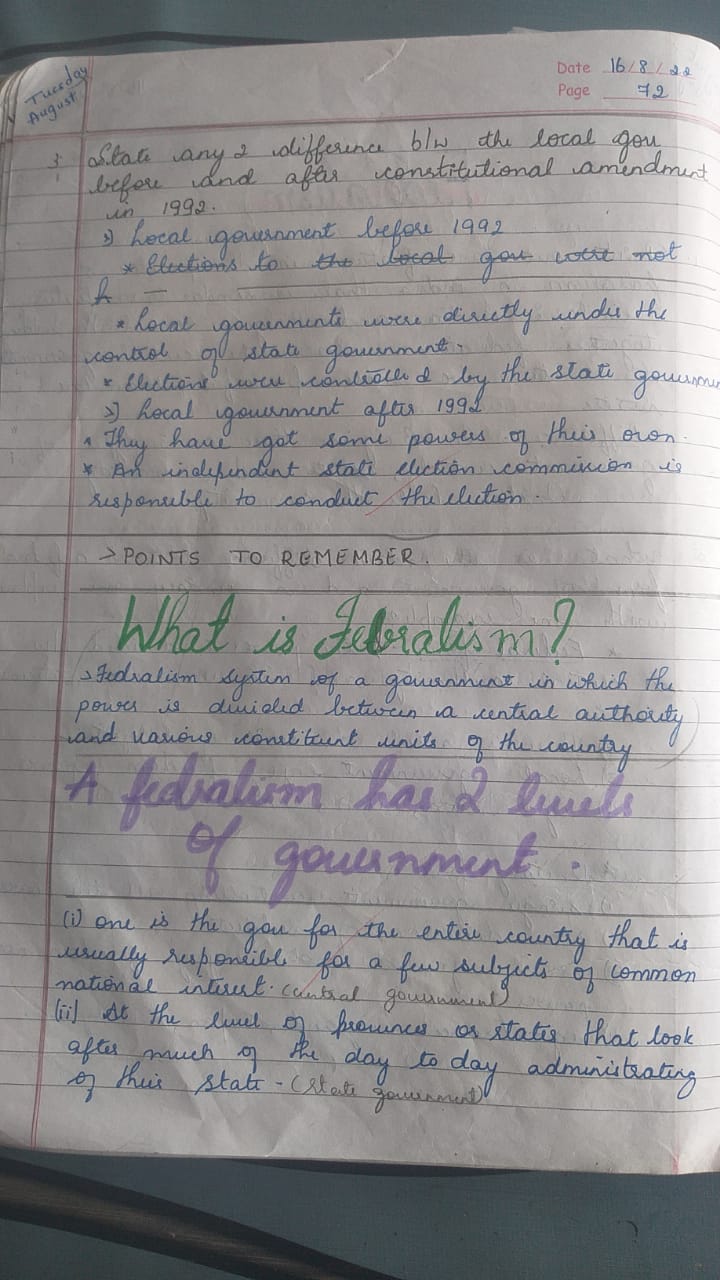 Tuesday
August
Date 16/8/22
Page 72
3. State any 2 difference b/w the local gov
before and after constitutional amendment
in 1992.
→ Local government before 1992
* Elections to the local gov were not
h —
* Local governments were directly under the
control of state government.
* Elections were controlled by the state governme
→ Local government after 1992
* They have got some powers of their own.
* An independent state election commission is
responsible to conduct the election.
> POINTS TO REMEMBER.
What is Fedralism?
→ Fedralism system of a government in which the
power is divided between a central authority
and various constituent units of the country
A fedralism has 2 levels
of government.
(i) one is the gov for the entire country that is
usually responsible for a few subjects of common
national interest. (central government)
(ii) At the level of provinces or states that look
after much of the day to day administrating
of their state - (state government)